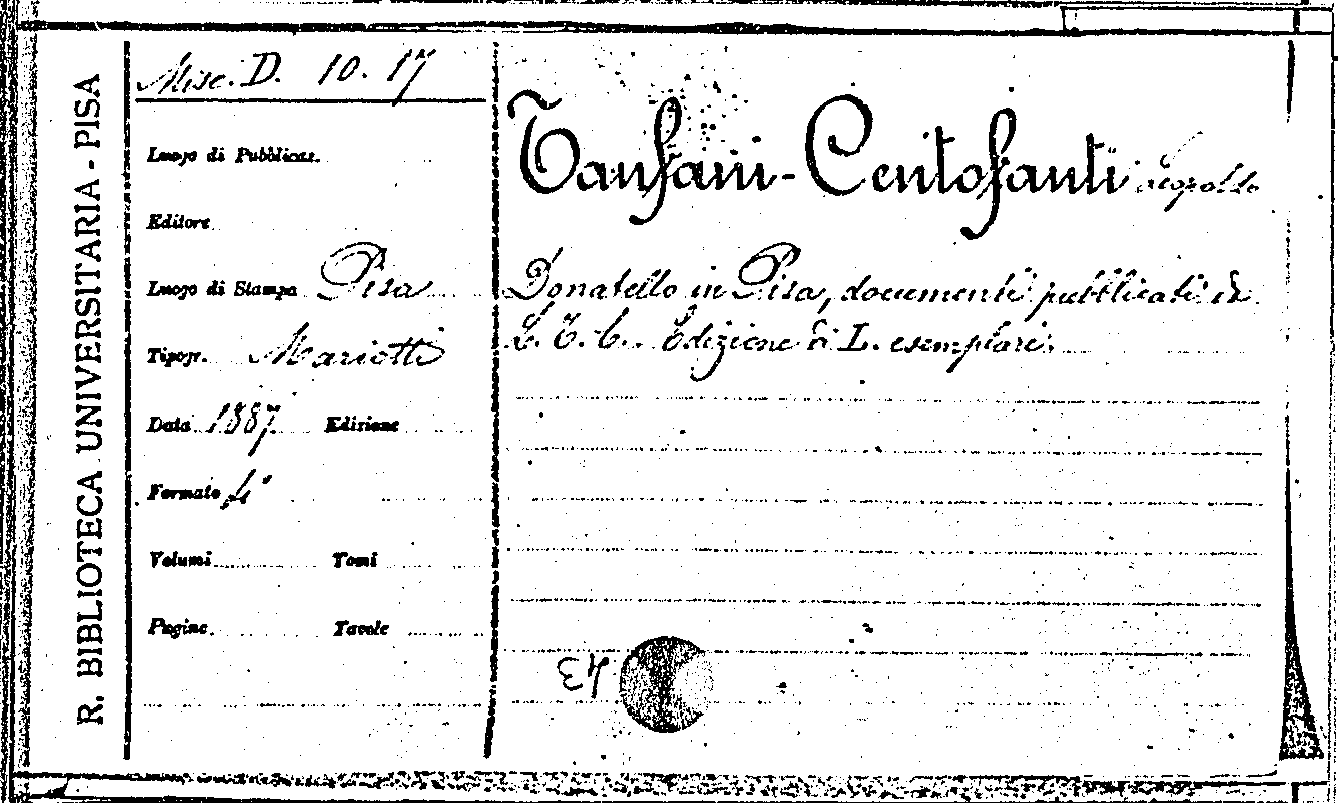 R. BIBLIOTECA UNIVERSITARIA - PISA
Misc. D. 10. 17
Luogo di Pubblicaz.
Editore
Luogo di Stampa Pisa
Tipogr. Mariotti
Data 1887 Edizione
Formato 4°
Volumi Tomi
Pagine Tavole
Tanfani-Centofanti Leopoldo
Donatello in Pisa, documenti pubblicati da
L. T. C. Edizione di L. esemplari.